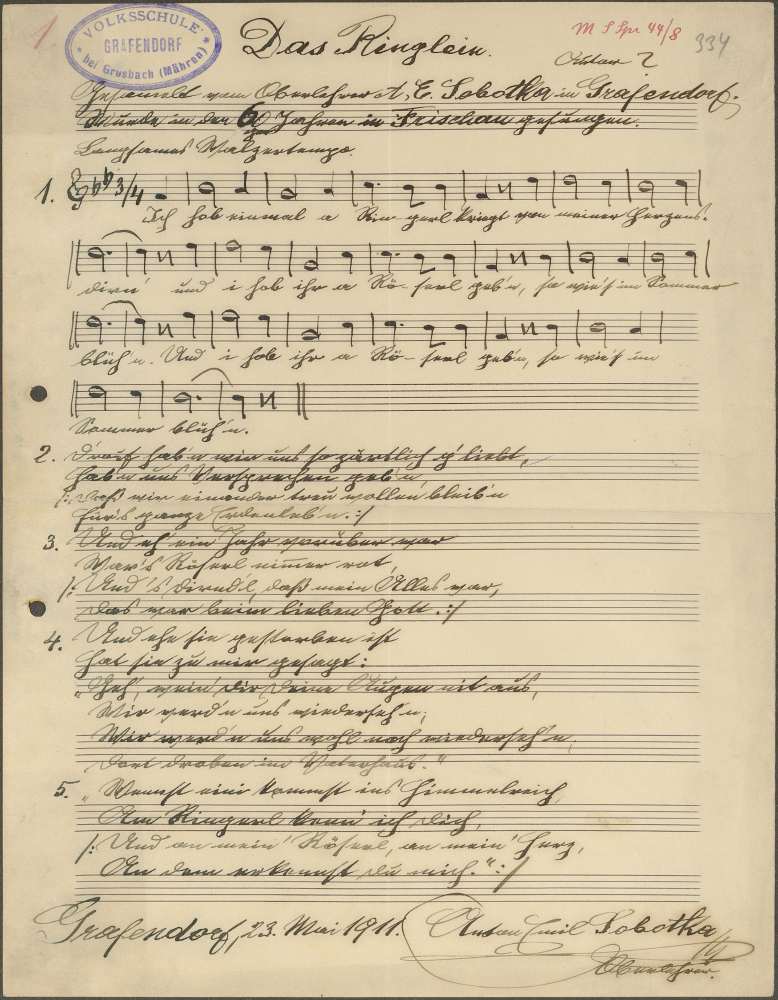 1
VOLKSSCHULE
GRAFENDORF
bei Grusbach (Mähren)
M S Spr 44/8
334
Das Ringlein.
Gesammelt vom Oberlehrer A. E. Sobotka in Grafendorf.
Wurde in den 60 Jahren in Frischau gesungen.
Langsames Walzertempo.
1. 3/4
Ich hab einmal a Rin-gerl kriegt von meiner Herzens-
dirn' und i hab ihr a Rö-serl geb'n, so wie's im Sommer
blüh'n. Und i hab ihr a Rö-serl geb'n, so wie's im
Sommer blüh'n.
2. D'rauf hab'n wir uns so zärtlich g'liebt,
Hab'n uns Versprechen geb'n
/: Daß wir einander treu wollen bleib'n
Für's ganze Erdenleb'n. :/
3. Und eh' ein Jahr vorüber war
War's Röserl nimmer rot,
/: Und 's Dirnd'l, daß mein Alles war,
Das war beim lieben Gott. :/
4. Und ehe sie gestorben ist
Hat sie zu mir gesagt:
„Geh', wein' dir deine Augen nit aus,
Wir werd'n uns wiederseh'n,
Wir werd'n uns wohl noch wiederseh'n,
Dort droben im Vaterhaus."
5. „Wennst eini kommst ins Himmelreich,
Am Ringerl kenn' ich dich,
/: Und an mein' Röserl, an mein' Herz,
An dem erkennst du mich." :/
Grafendorf, 23. Mai 1911.
Anton Emil Sobotka
Oberlehrer.